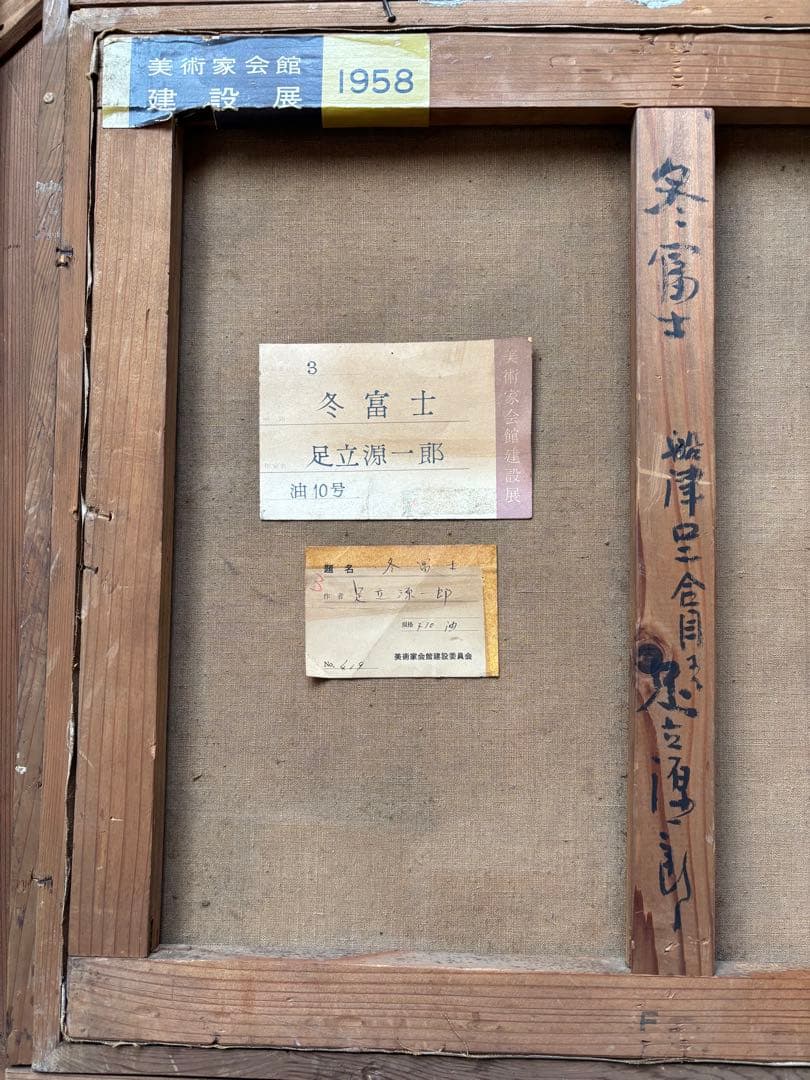 美術家会館
建設展
1958
3
冬富士
足立源一郎
油10号
美術家会館建設展
題名 冬富士
3
作者 足立源一郎
規格 F10 油
美術家会館建設委員会
No. 419
冬富士
船津口二合目
足立源一郎
F